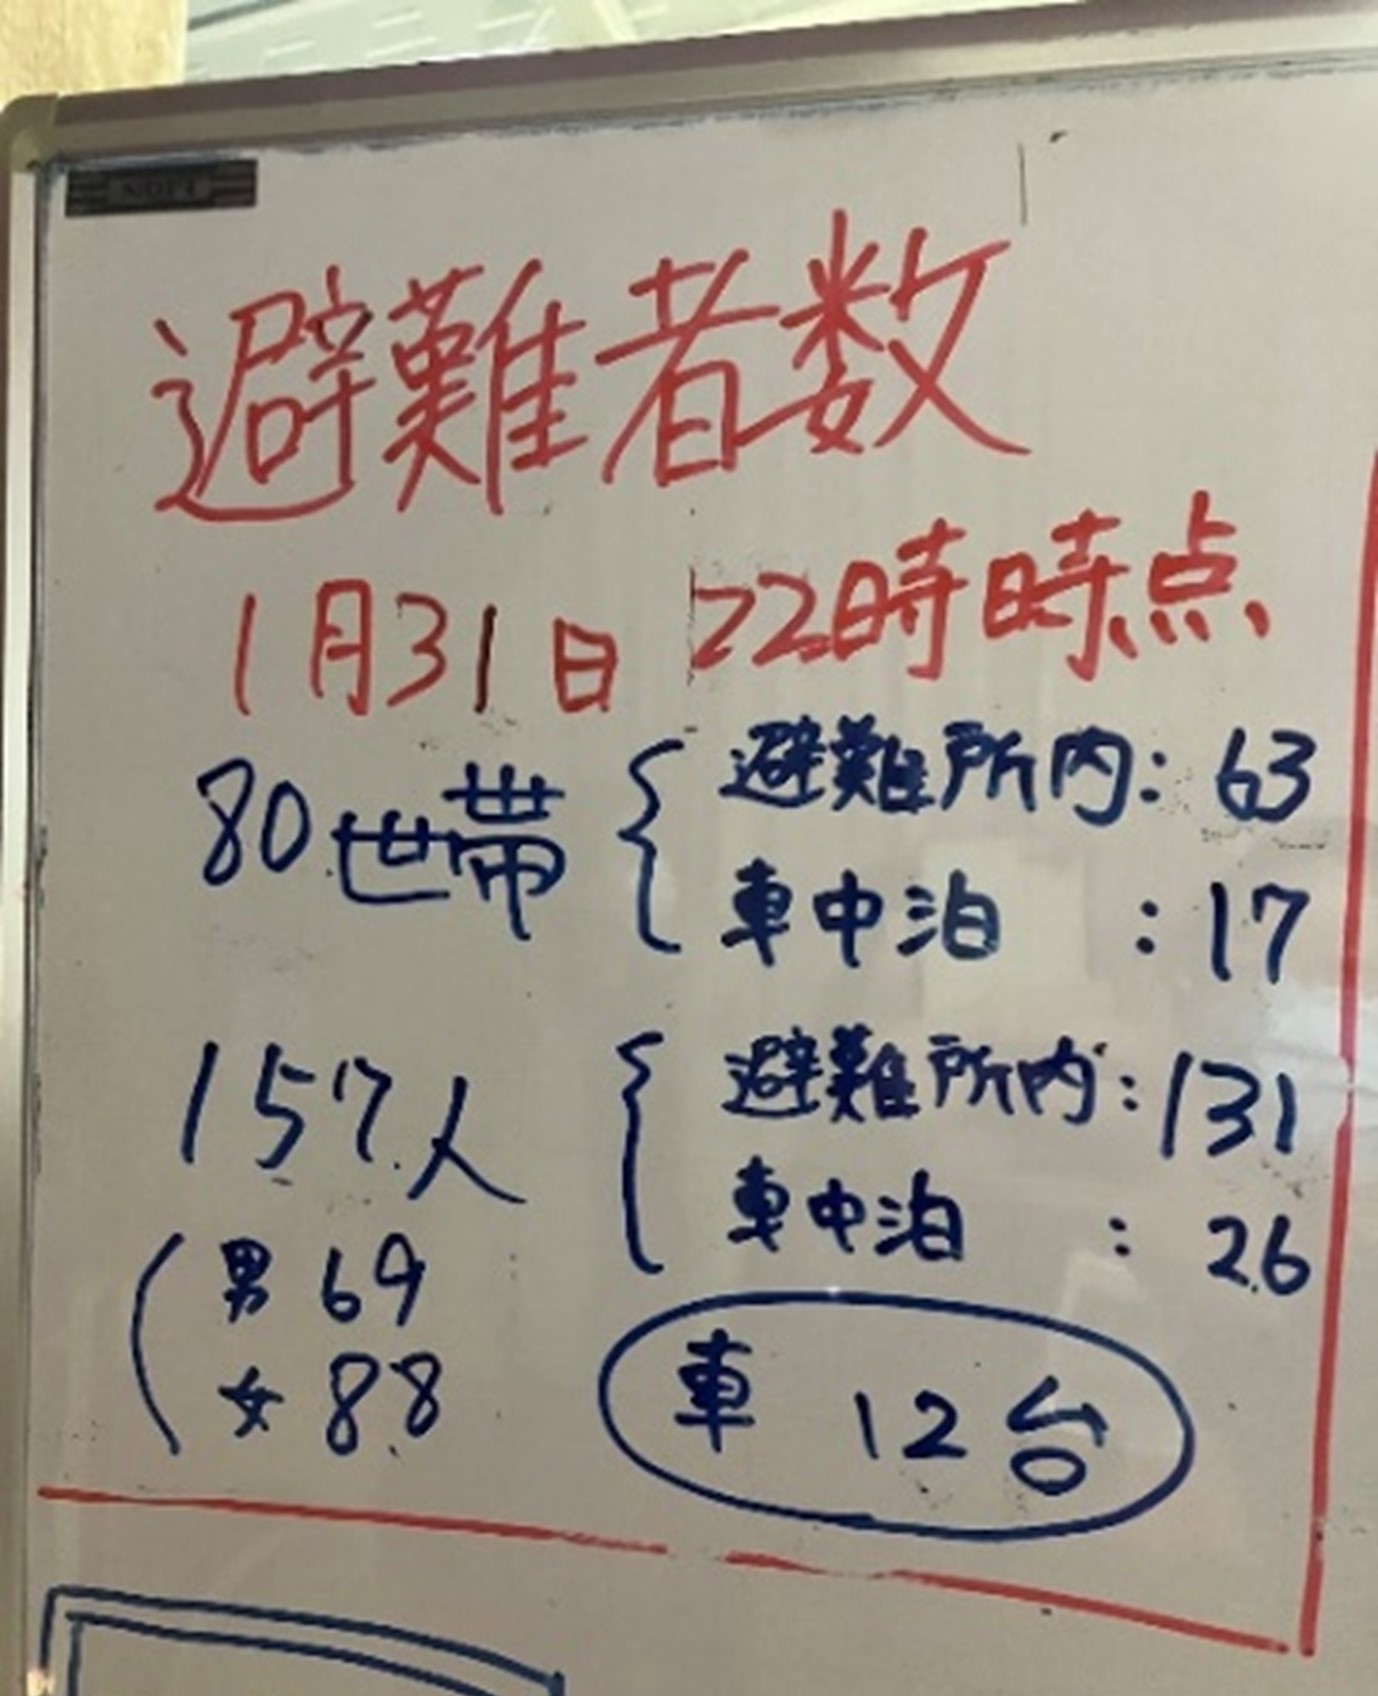 避難者数
1月31日 22時時点
80世帯 { 避難所内: 63
車中泊 : 17
157人 { 避難所内: 131
車中泊 : 26
( 男 69
女 88
車 12台